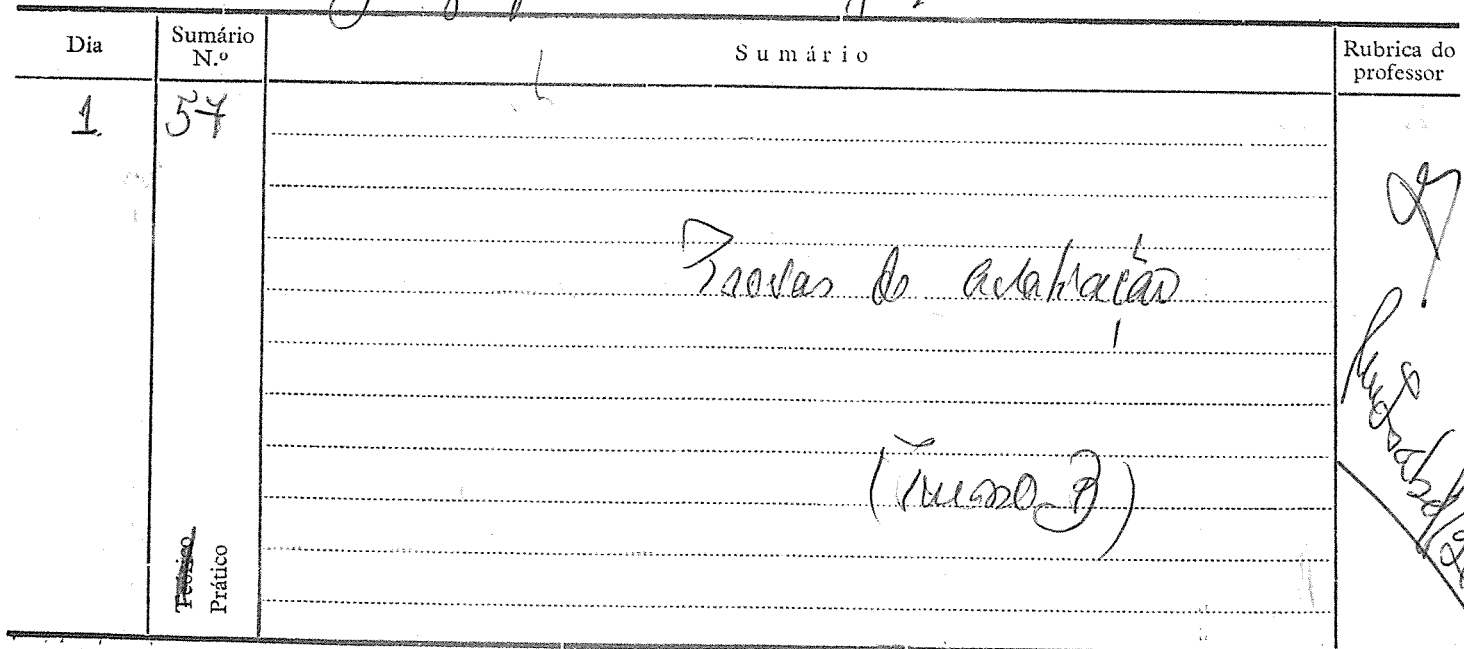 Dia
Sumário
N.º
Sumário
Rubrica do
professor
1
57
Provas de avaliação
(Turma B)
Teórico
Prático